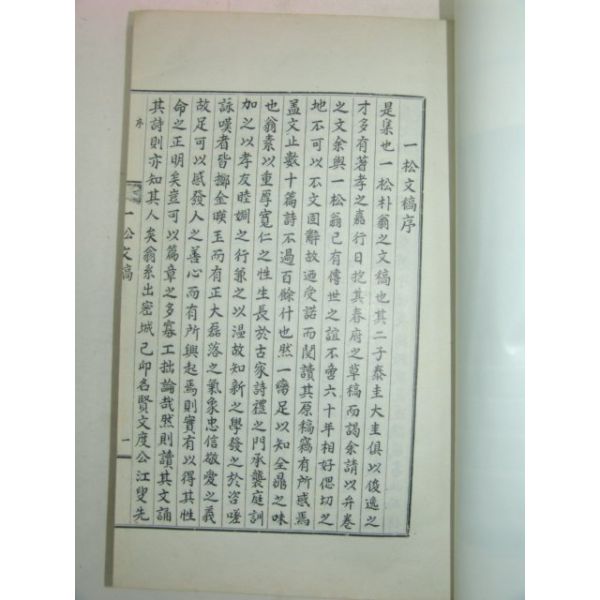 一松文稿序
是集也一松朴翁之文稿也其二子泰圭大圭俱以俊逸之
才多有著孝之嘉行日抱其春府之草稿而謁余請以弁卷
之文余與一松翁己有傳世之誼不啻六十年相好偲切之
地不可以不文固辭故迺受諾而閱讀其原稿竊有所感焉
盖文止數十篇詩不過百餘什也然一臠足以知全鼎之味
也翁素以重厚寬仁之性生長於古家詩禮之門承襲庭訓
加之以孝友睦婣之行兼之以温故知新之學發之於咨嗟
詠嘆者皆擲金暎玉而有正大磊落之氣象忠信敬愛之義
故足可以感發人之善心而有所興起焉則實有以得其性
命之正明矣豈可以篇章之多寡工拙論哉然則讀其文誦
其詩則亦知其人矣翁系出密城己卯名賢文度公江叟先
序
一松文稿
一